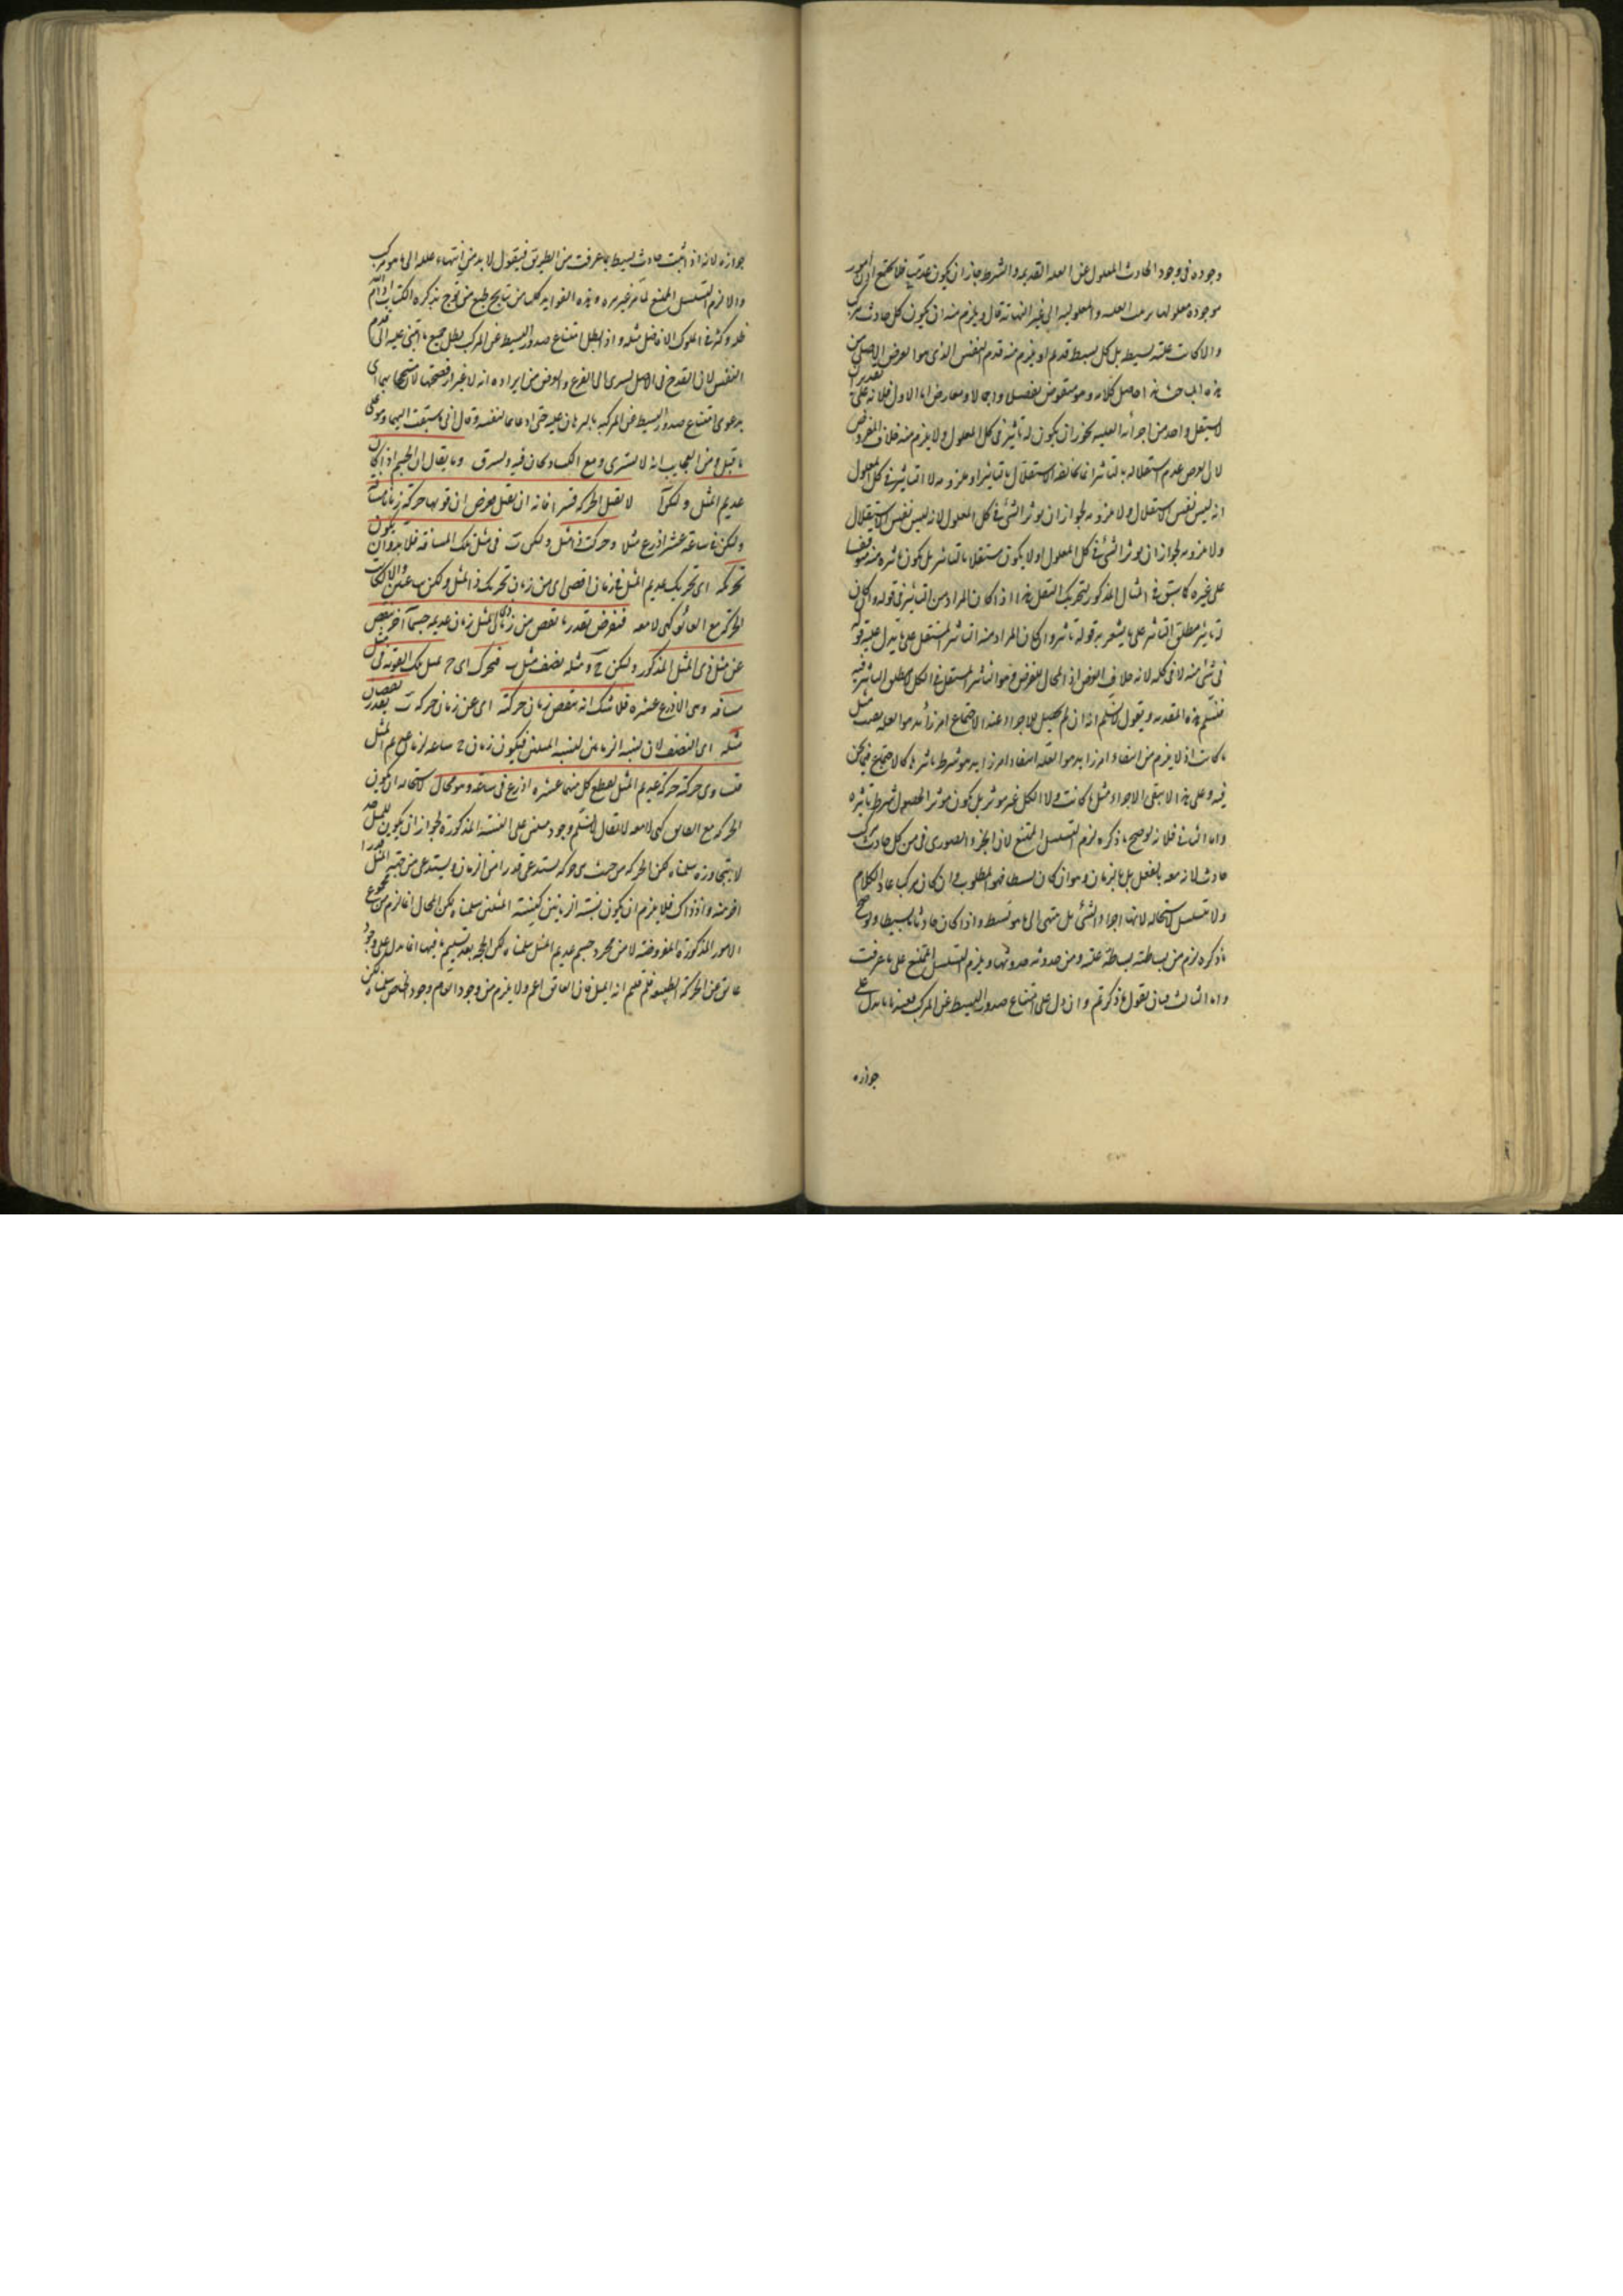 وجوده فى وجود الحادث المعلول عن العلة القديمة والشرط جاز ان يكون عدميا فلا يجتمع امور
موجودة معلولها ترتب العلية والمعلولية الى غير النهاية قال ويلزم منه ان يكون كل حادث مركب
والا لكانت علته بسيطة بل كل بسيط قديم او يلزم منه قدم النفس الذى هو الغرض الاصلى من
هذه المباحث هذا حاصل كلامه وهو منقوض تفصيلا واجمالا ومعارض اما الاول فلانه على تقدير ان
استقل واحد من اجزائه العلية يجوز ان يكون له تاثير فى كل المعلول ولا يلزم منه خلاف المفروض
لان الفرض عدم استقلاله بالتاثير انما يخالفه الاستقلال بالتاثير او ملزومه لا التاثير فى كل المعلول
اذ ليس نفس الاستقلال ولا ملزومه لجواز ان يوثر الشئ فى كل المعلول لانه ليس نفس الاستقلال
ولا ملزومه لجواز ان يوثر الشئ فى كل المعلول اولا يكون مستقلا بالتاثير بل يكون تاثيره منه متوقفا
على غيره كما سبق فى المثال المذكور لتحريك الثقيل هذا اذا كان المراد من التاثير فى قوله وان كان
له تاثير مطلق التاثير على ما يشعر به قوله تاثير وان كان المراد منه التاثير المستقل على ما يدل عليه قوله
فى شئ منه لا فى كله لانه خلاف الفرض اذ المحال للفرض هو التاثير المستقل فى الكل لا مطلق التاثير فيه
فنسلم هذه المقدمة ونقول لا نسلم انه ان لم يحصل للاجزاء عند الاجتماع امر زائد هو العلة بقيت مثل
ما كانت اذ لا يلزم من انتفاء امر زايد هو العلة انتفاء امر زايد هو شرط تاثيرها كالاجتماع فيما نحن
فيه وعلى هذا لا يبقى الاجزاء مثل ما كانت ولا الكل غير موثر بل يكون موثرا لحصول شرط تاثيره
واما الثانى فلانه لو صح ما ذكره لزم التسلسل الممتنع لان الجزء الصورى من كل حادث مركب
حادث لانه معه بالفعل بل بالزمان وهو ان كان بسيطا فهو المطلوب وان كان مركبا عاد الكلام
ولا تتسلسل لاستحالة لا نهاية اجزاء الشئ بل ينتهى الى ما هو بسيط واذا كان حادثا بسيطا ولو صح
ما ذكره لزم من بساطته بساطة علته ومن حدوثه حدوثها ويلزم التسلسل الممتنع على ما عرفت
واما الثالث فبان يقول ما ذكرتم وان دل على امتناع صدور البسيط عن المركب فعندنا ما يدل على
جوازه
جوازه لانه اذ اثبت حادث بسيط بما عرفت من الطريق فنقول لا بد من انتهاء علله الى ما هو مركب
والا لزم التسلسل الممتنع لما مر غير مرة وهذه الفوايد كلها من نتايج طبع من توج بذكره الكتاب ادام الله
ظله وكثر فى الملوك الافاضل مثله واذ ابطل امتناع صدور البسيط عن المركب بطل جميع ما ابتنى عليه الى قدم
النفس لان القدح فى الاصل يسرى الى الفرع والغرض من ايراده انه لا يغتر
بدعوى امتناع صدور البسيط عن المركب بالبرهان عليه حتى ادعاها لنفسه وقال انى ما سبقت اليها وهو على
ما قيل ومن العجايب انه لا يشترى ومع الكساد يخان فيه ويسرق وما يقال ان الجسم اذا كان
عديم الميل وليكن آ لا يقبل الحركة قسرا فانه ان يقبل فرض ان قوة ما حركته زمانا مسافة
وليكن فى ساعة عشر اذرع مثلا وحركت ذا ميل وليكن ب فى مثل تلك المسافة فلا بد وان يكون
تحركه اى تحريك عديم الميل فى زمان اقصر اى من زمان تحريك ذى الميل وليكن ساعتين والا لكانت
الحركة مع العائق كهى لا معه فنفرض بقدر ما نقص من زمان ذى الميل زمان عديمه جسما آخر ينقص
عن ميل ذى الميل المذكور وليكن ج وميله نصف ميل ب فيحرك اى ج بمثل تلك القوة فى مثل
مسافته وهى الاذرع عشرة فلا شك انه ينقص زمان حركته اى عن زمان حركة ب بقدر نقصان
ميله اى النصف لان نسبة الزمانين كنسبة الميلين فيكون زمان ج ساعة كزمان عديم الميل
فتساوى حركته حركة عديم الميل لقطع كل منهما عشرة اذرع فى ساعة وهو محال لاستحالة ان يكون
الحركة مع العائق كهى لا معه لا يقال لا نسلم وجود ميلين على النسبة المذكورة لجواز ان يكون للميل حد
لا يتجاوزه سلمناه لكن الحركة من حيث هى حركة يستدعى قدرا من الزمان ويستدعى من جهة الميل قدرا
آخر منه واذ ذاك فلا يلزم ان يكون نسبة الزمانين كنسبة الميلين سلمناه لكن المحال انما لزم من مجموع
الامور المذكورة المفروضة لا من مجرد جسم عديم الميل سلمناه لكن الحجة بعد تسليم ما فيها انما يدل على وجود
عائق عن الحركة الطبيعية فلم قلتم انه الميل فان العائق اعم ولا يلزم من وجود العام وجود الخاص سلمناه لكن